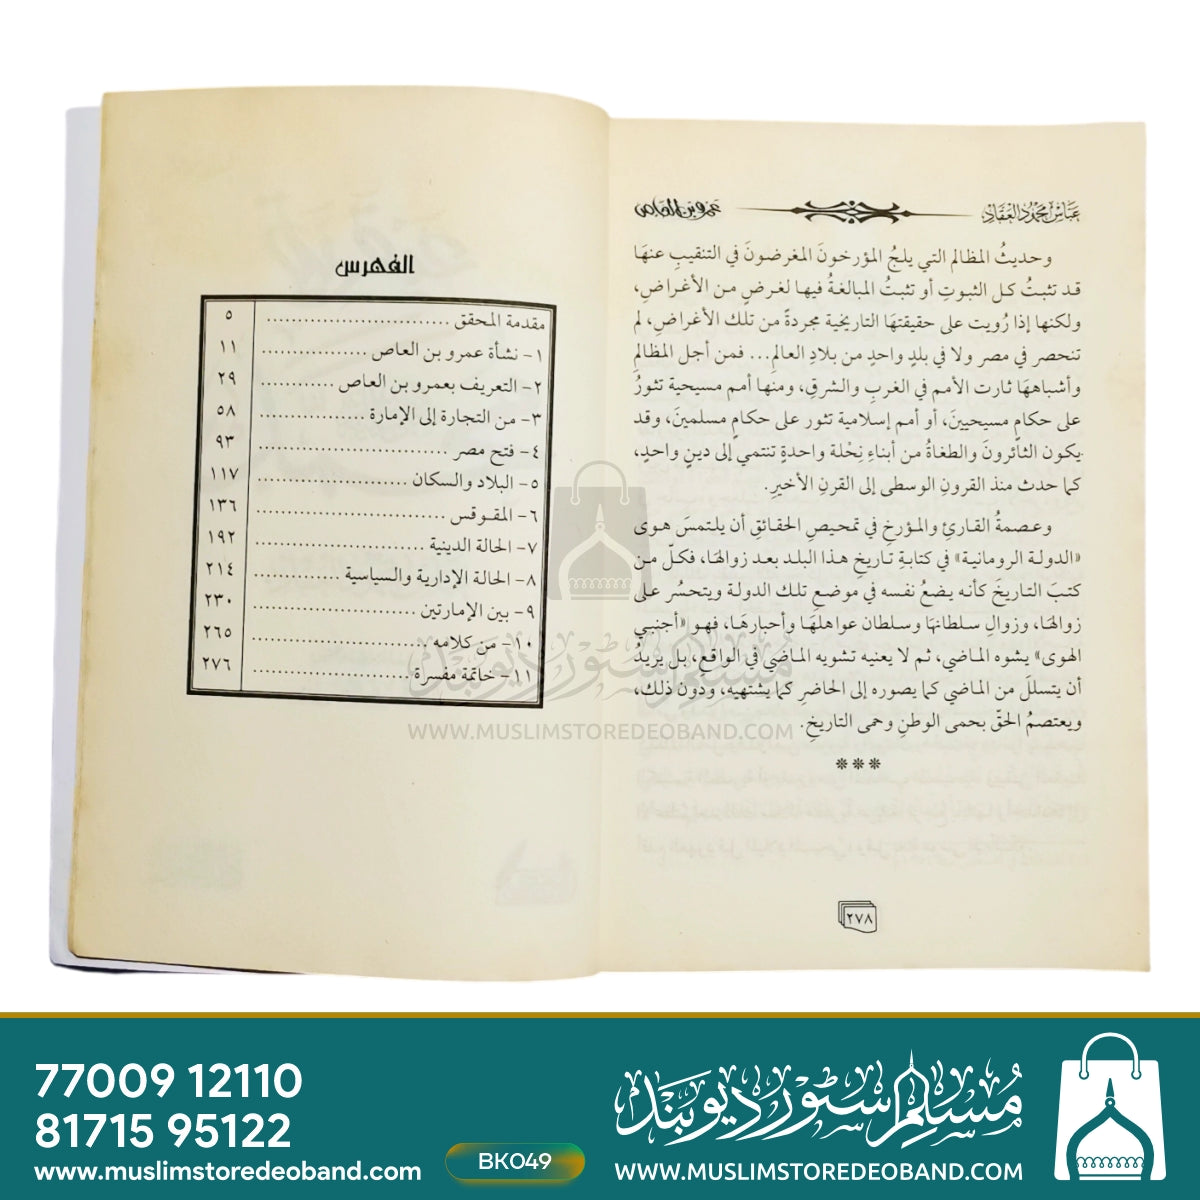 عباس محمود العقاد
عمرو بن العاص
وحديثُ المظالم التي يلجُ المؤرخونَ المغرضونَ في التنقيبِ عنهَا
قد تثبتُ كل الثبوتِ أو تثبتُ المبالغةُ فيها لغرضٍ من الأغراضِ،
ولكنها إذا رُويت على حقيقتهَا التاريخية مجردةً من تلك الأغراض، لم
تنحصر في مصر ولا في بلدٍ واحدٍ من بلادِ العالمِ... فمن أجل المظالمِ
وأشباههَا ثارت الأمم في الغربِ والشرقِ، ومنها أمم مسيحية تثورُ
على حكامٍ مسيحيينَ، أو أمم إسلامية تثور على حكامٍ مسلمينَ، وقد
يكون الثائرونَ والطغاةُ من أبناءِ نِحْلة واحدةٍ تنتمي إلى دينٍ واحدٍ،
كما حدث منذ القرونِ الوسطى إلى القرنِ الأخيرِ.
وعصمةُ القارئِ والمؤرخِ في تمحيصِ الحقائقِ أن يلتمسَ هوى
«الدولة الرومانية» في كتابةِ تاريخِ هذا البلد بعد زوالهَا، فكلّ من
كتبَ التاريخَ كأنه يضعُ نفسه في موضعِ تلك الدولة ويتحسُر على
زوالهَا، وزوالِ سلطانهَا وسلطان عواهلهَا وأحبارهَا، فهو «أجنبي
الهوى» يشوه الماضي، ثم لا يعنيه تشويه الماضي في الواقعِ، بل يريدُ
أن يتسللَ من الماضي كما يصوره إلى الحاضرِ كما يشتهيه، ودون ذلك،
ويعتصمُ الحقّ بحمى الوطنِ وحمى التاريخِ.
***
٢٧٨
الفهرس
مقدمة المحقق ............................ ٥
١- نشأة عمرو بن العاص ................ ١١
٢- التعريف بعمرو بن العاص ........... ٢٩
٣- من التجارة إلى الإمارة ................ ٥٨
٤- فتح مصر ............................ ٩٣
٥- البلاد والسكان ....................... ١١٧
٦- المقوقس ............................ ١٣٦
٧- الحالة الدينية ......................... ١٩٢
٨- الحالة الإدارية والسياسية ............. ٢١٤
٩- بين الإمارتين ........................ ٢٣٠
١٠- من كلامه .......................... ٢٦٥
١١- خاتمة مفسرة ....................... ٢٧٦
مسلم سٹور دیوبند
WWW.MUSLIMSTOREDEOBAND.COM
77009 12110
81715 95122
www.muslimstoredeoband.com
BK049
مسلم سٹور دیوبند
WWW.MUSLIMSTOREDEOBAND.COM